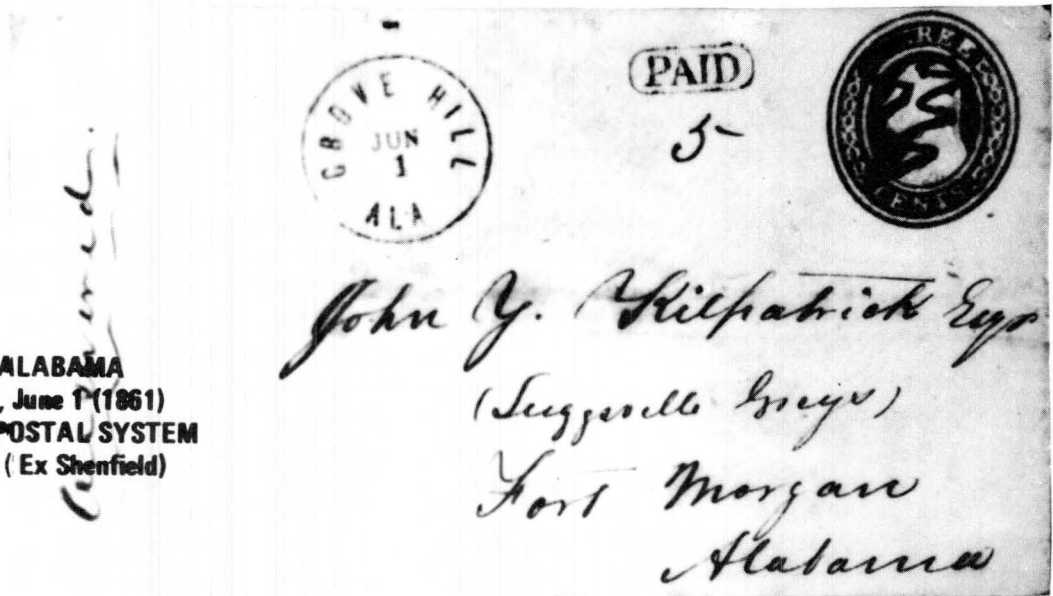 GROVE HILL
JUN
1
ALA
PAID
5
THREE
CENTS
John Y. Kilpatrick Esqr
(Suggsville Greys)
Fort Morgan
Alabama
Answered.
ALABAMA
, June 1 (1861)
POSTAL SYSTEM
(Ex Shenfield)